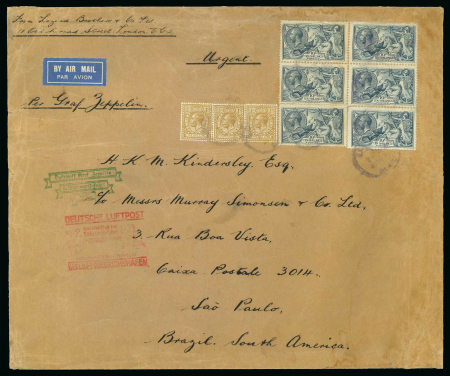 From Lazard Brothers & Co. Ltd
Street London E.C.2.
Urgent
BY AIR MAIL
PAR AVION
Per Graf Zeppelin.
H. K. M. Kindersley, Esq.
c/o Messrs Murray Simonsen & Co. Ltd.
DEUTSCHE LUFTPOST
3. Rua Boa Vista,
Caixa Postale 3014.
São Paulo,
Brazil. South America.